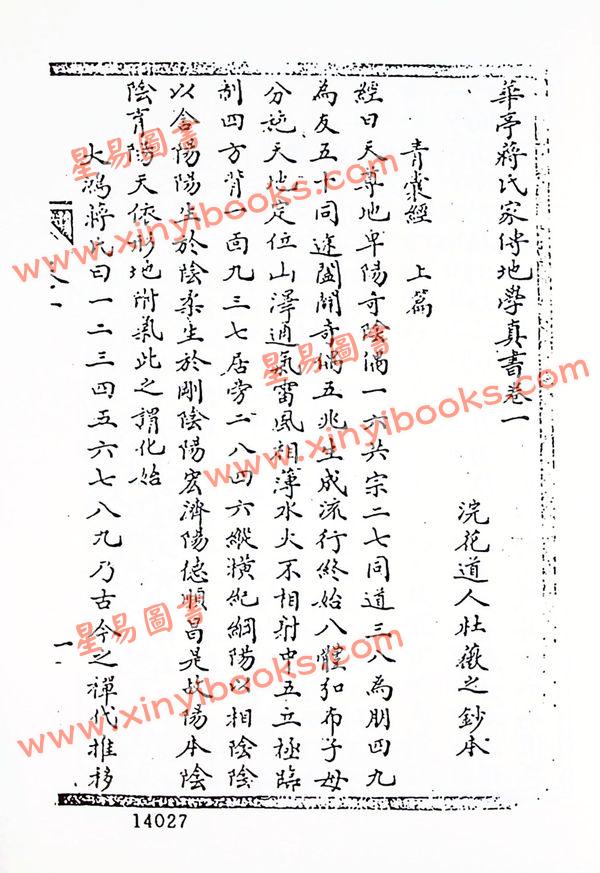 華亭蔣氏家傳地學真書卷一
浣花道人杜薇之鈔本
青囊經　上篇
經曰天尊地卑陽奇陰偶一六共宗二七同道三八為朋四九
為友五十同途闔闢奇偶五兆生成流行終始八體弘布子母
分施天地定位山澤通氣雷風相薄水火不相射中五立極臨
制四方背一面九三七居旁二八四六縱橫紀綱陽以相陰陰
以含陽陽生於陰柔生於剛陰陽宏濟陽德順昌是故陽本陰
陰育陽天依形地附氣此之謂化始
大鴻蔣氏曰一二三四五六七八九乃古今之禪代推移
一
14027
星易圖書
www.xinyibooks.com
星易圖書
www.xinyibooks.com
星易圖書
www.xinyibooks.com